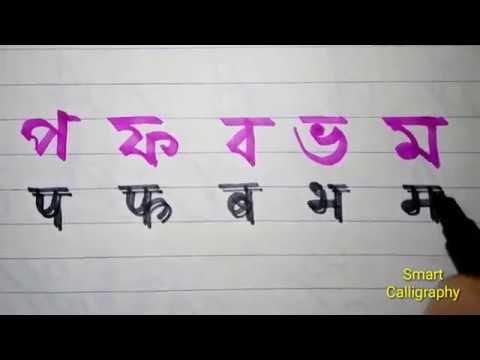 প ফ ব ভ ম
प फ ब भ म
Smart
Calligraphy